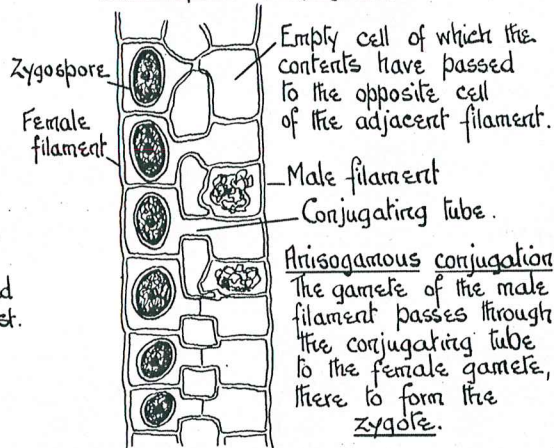 Zygospore
Female
filament
Empty cell of which the
contents have passed
to the opposite cell
of the adjacent filament.
Male filament
Conjugating tube.
Anisogamous conjugation
The gamete of the male
filament passes through
the conjugating tube
to the female gamete,
there to form the
zygote.